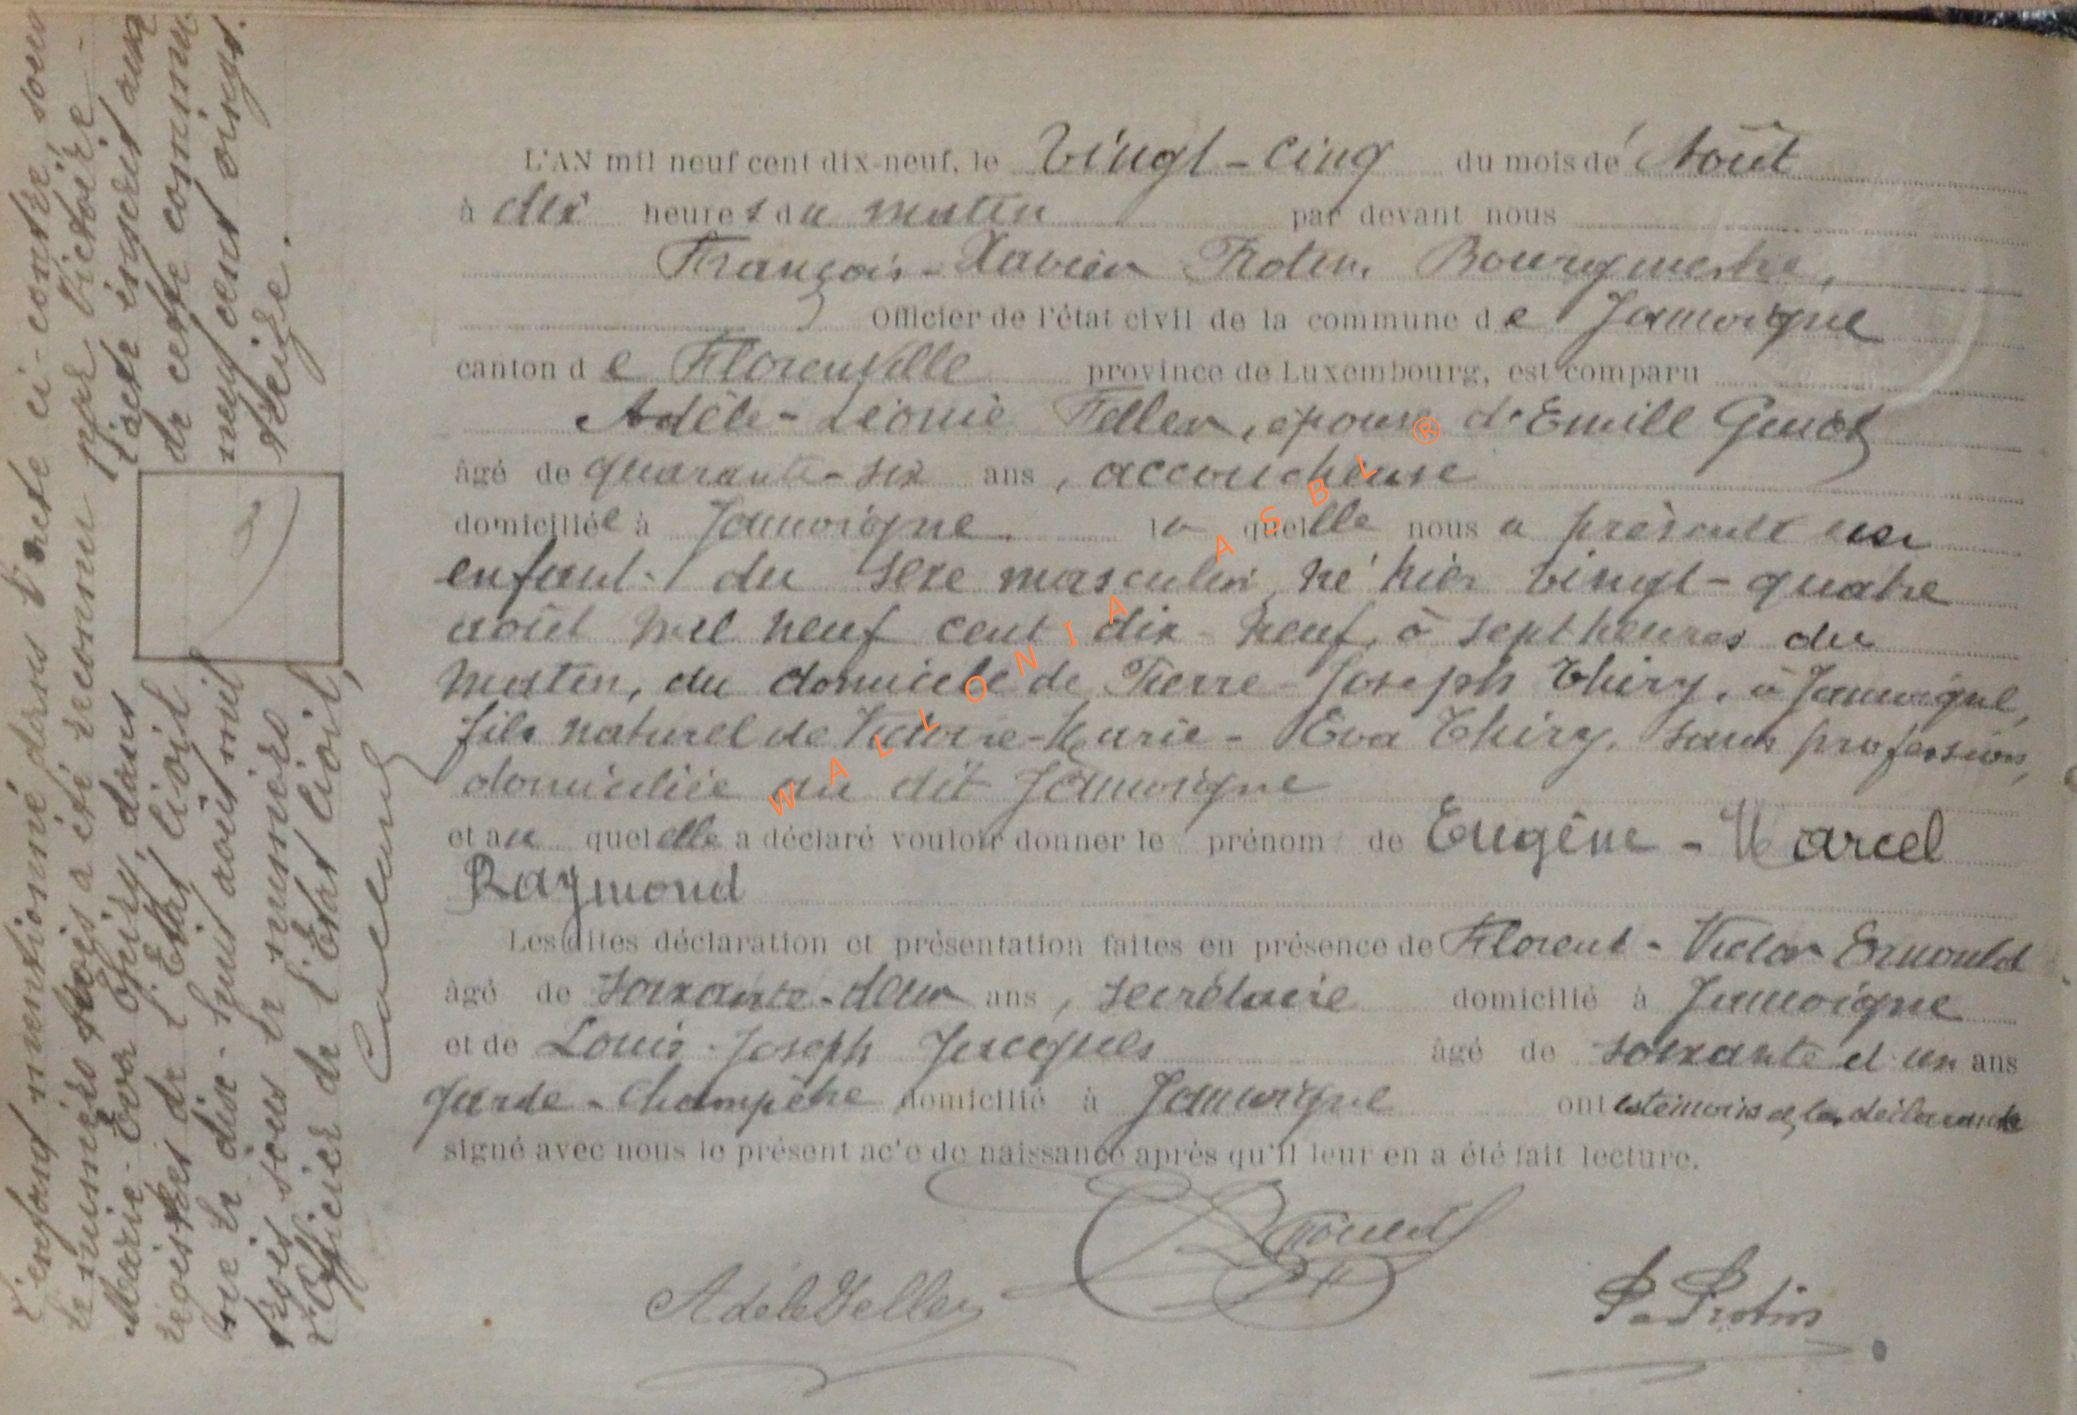 L'AN mil neuf cent dix-neuf, le Vingt-cinq du mois de Août
à dix heures du matin par devant nous
François-Xavier Protin, Bourgmestre,
Officier de l'état civil de la commune de Jamoigne
canton de Florenville province de Luxembourg, est comparu
Adèle-Léonie Feller, épouse d'Emile
âgé de quarante-six ans, accoucheuse
domiciliée à Jamoigne. laquelle nous a présenté un
enfant du sexe masculin, né hier vingt-quatre
août mil neuf cent dix-neuf, à sept heures du
matin, au domicile de Pierre-Joseph Thiry, à Jamoigne,
fils naturel de Victoire-Marie-Eva Thiry, sans profession,
domiciliée au dit Jamoigne
et au quel elle a déclaré vouloir donner le prénom de Eugène-Marcel
Raymond
Les dites déclaration et présentation faites en présence de Florent-Victor Ernould
âgé de soixante-deux ans, secrétaire domicilié à Jamoigne
et de Louis-Joseph Jacques âgé de soixante et un ans
garde-champêtre domicilié à Jamoigne ont les témoins et la déclarante
signé avec nous le présent acte de naissance après qu'il leur en a été fait lecture.
Adèle Feller
Ernould
Protin
3
L'enfant mentionné dans l'acte ci-contre, sous
le numéro trois a été reconnu par Victoire-
Marie-Eva Thiry, dans l'acte inscrit aux
registres de l'Etat civil de cette commune
le dix-huit août mil neuf cent vingt-
trois sous le numéro treize.
L'Officier de l'Etat civil,
WALLONIA ASBL ®